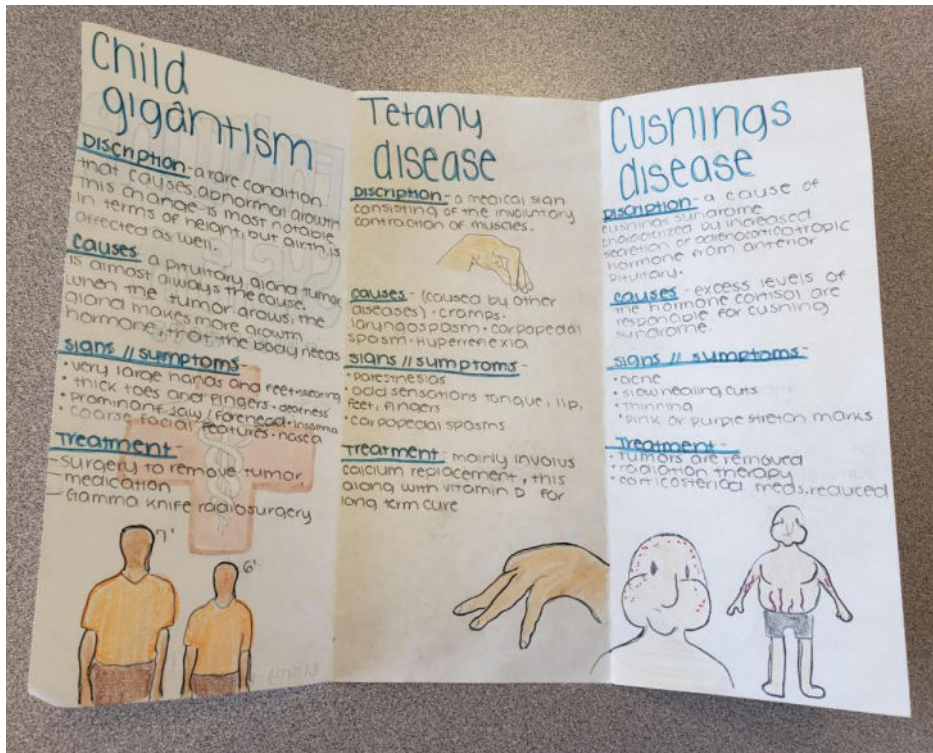 Child
gigantism
Discription - a rare condition
that causes abnormal growth
This change is most notable
in terms of height, but girth is
affected as well.
Causes a pituitary gland tumor
is almost always the cause.
When the tumor grows, the
gland makes more growth
hormone, that the body needs
signs // symptoms -
• very large hands and feet
• thick toes and fingers • deafness
• prominant jaw / forehead • insomnia
• coarse facial features •
Treatment -
- surgery to remove tumor
- medication
- Gamma knife radiosurgery
7'
6'
Tetany
disease
Discription - a medical sign
consisting of the involuntary
contraction of muscles.
causes - (caused by other
diseases) • cramps •
laryngospasm • carpopedal
spasm • hyperreflexia
signs // symptoms -
• odd sensations tongue, lip,
feet, fingers
• carpopedal spasms
Treatment - mainly involvs
calcium replacement, this
along with vitamin D for
long term cure
Cushings
disease
Discription - a cause of
cushings syndrome
characterized by increased
secretion of adrenocorticotropic
hormone from anterior
pituitary.
causes - excess levels of
the hormone cortisol are
responsible for cushing
syndrome.
signs // symptoms -
• acne
• slow healing cuts
• thinning
• pink or purple stretch marks
Treatment -
• tumors are removed
• radiation therapy
• meds. reduced